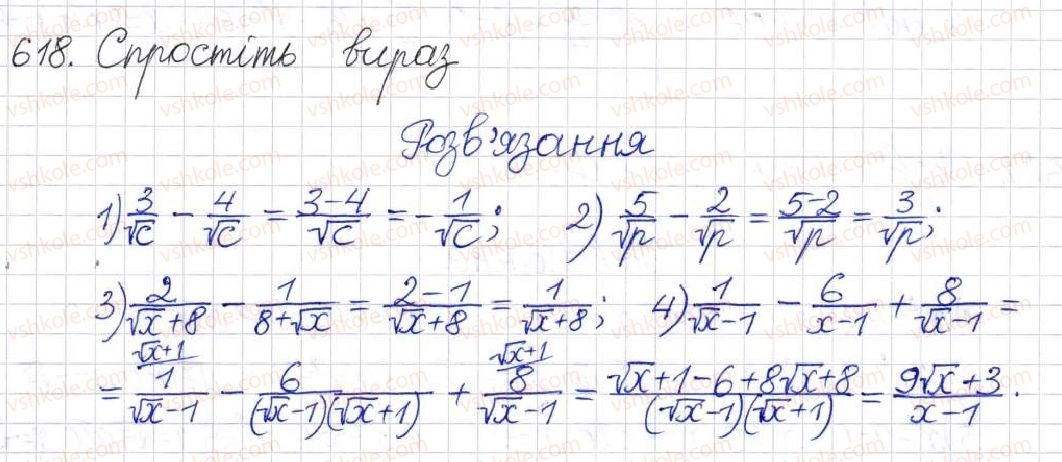 618. Спростіть вираз
Розв'язання
1) 3/√c − 4/√c = (3−4)/√c = −1/√c; 2) 5/√p − 2/√p = (5−2)/√p = 3/√p;
3) 2/(√x+8) − 1/(8+√x) = (2−1)/(√x+8) = 1/(√x+8); 4) 1/(√x−1) − 6/(x−1) + 8/(√x−1) =
= ^(√x+1) 1/(√x−1) − 6/((√x−1)(√x+1)) + ^(√x+1) 8/(√x−1) = (√x+1−6+8√x+8)/((√x−1)(√x+1)) = (9√x+3)/(x−1).